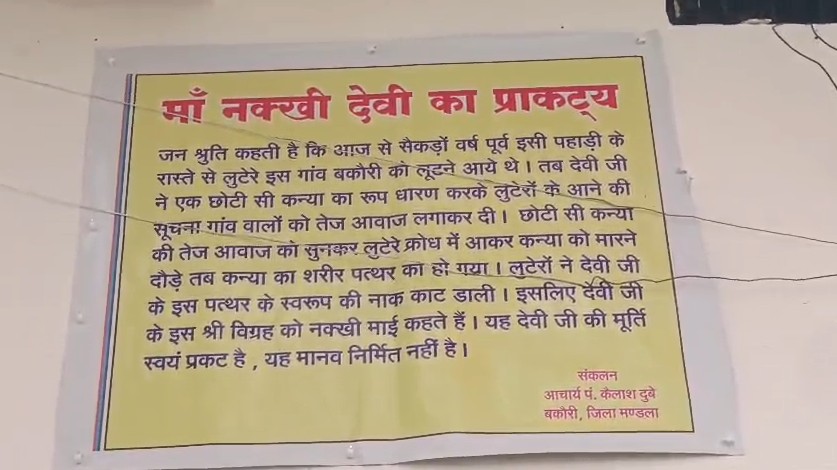 माँ नक्खी देवी का प्राकट्य
जन श्रुति कहती है कि आज से सैकड़ों वर्ष पूर्व इसी पहाड़ी के
रास्ते से लुटेरे इस गांव बकौरी को लूटने आये थे । तब देवी जी
ने एक छोटी सी कन्या का रूप धारण करके लुटेरों के आने की
सूचना गांव वालों को तेज आवाज लगाकर दी । छोटी सी कन्या
की तेज आवाज को सुनकर लुटेरे क्रोध में आकर कन्या को मारने
दौड़े तब कन्या का शरीर पत्थर का हो गया । लुटेरों ने देवी जी
के इस पत्थर के स्वरूप की नाक काट डाली । इसलिए देवी जी
के इस श्री विग्रह को नक्खी माई कहते हैं । यह देवी जी की मूर्ति
स्वयं प्रकट है , यह मानव निर्मित नहीं है ।
संकलन
आचार्य पं. कैलाश दुबे
बकौरी, जिला मण्डला